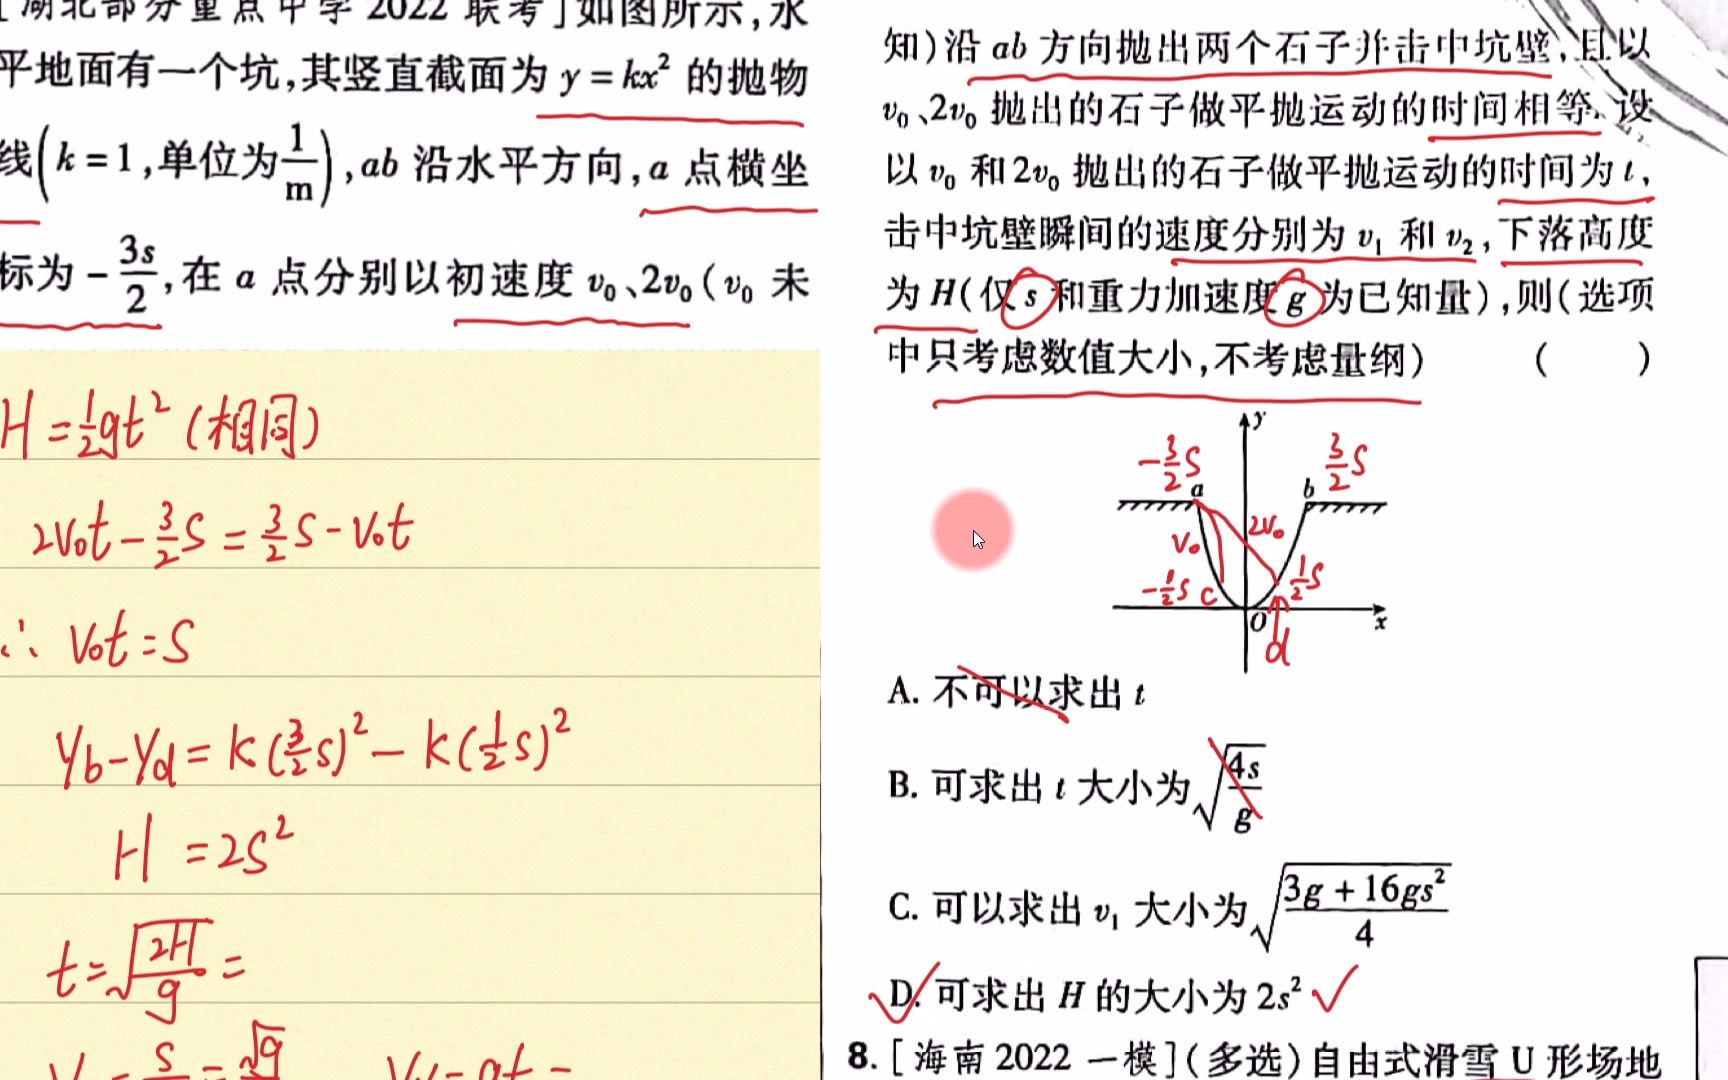 [湖北部分重点中学 2022 联考]如图所示,水
平地面有一个坑,其竖直截面为 y = kx² 的抛物
线(k = 1,单位为 1/m),ab 沿水平方向,a 点横坐
标为 - 3s/2,在 a 点分别以初速度 v₀、2v₀(v₀ 未
H = ½gt² (相同)
2v₀t - 3/2 S = 3/2 S - v₀t
∴ v₀t = S
y_b - y_d = k(3/2 S)² - k(1/2 S)²
H = 2S²
t = √(2H/g) =
= S = √g
Vy = gt =
知)沿 ab 方向抛出两个石子并击中坑壁,且以
v₀、2v₀ 抛出的石子做平抛运动的时间相等. 设
以 v₀ 和 2v₀ 抛出的石子做平抛运动的时间为 t,
击中坑壁瞬间的速度分别为 v₁ 和 v₂,下落高度
为 H(仅 s 和重力加速度 g 为已知量),则(选项
中只考虑数值大小,不考虑量纲) ( )
y
-3/2 S
3/2 S
a
b
v₀
2v₀
-1/2 S
c
1/2 S
O
x
d
A. 不可以求出 t
B. 可求出 t 大小为 √(4s/g)
C. 可以求出 v₁ 大小为 √((3g + 16gs²)/4)
D. 可求出 H 的大小为 2s²
8. [海南 2022 一模](多选)自由式滑雪 U 形场地